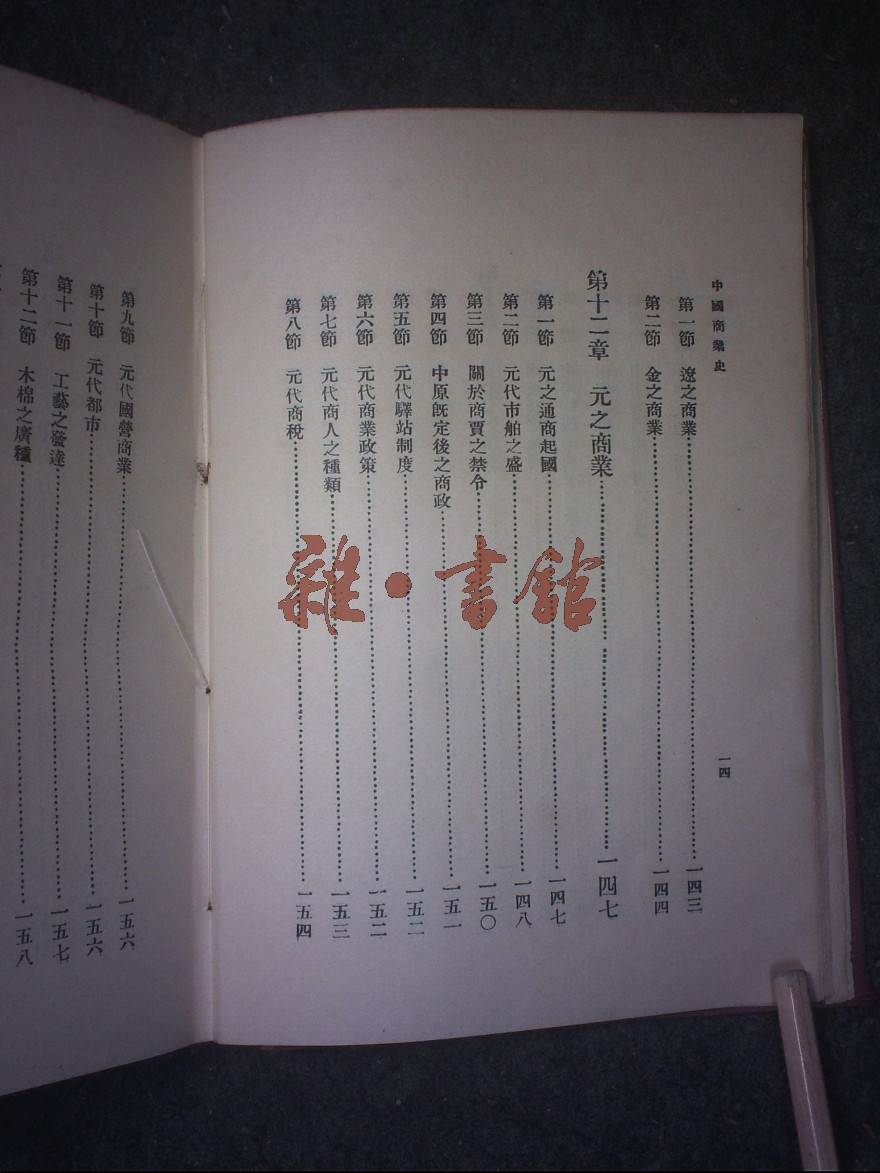 中國商業史
一四
第一節 遼之商業……一四三
第二節 金之商業……一四四
第十二章 元之商業……一四七
第一節 元之通商起國……一四七
第二節 元代市舶之盛……一四八
第三節 關於商賈之禁令……一五〇
第四節 中原旣定後之商政……一五一
第五節 元代驛站制度……一五二
第六節 元代商業政策……一五二
第七節 元代商人之種類……一五三
第八節 元代商稅……一五四
第九節 元代國營商業……一五六
第十節 元代都市……一五六
第十一節 工藝之發達……一五七
第十二節 木棉之廣種……一五八
雜·書館